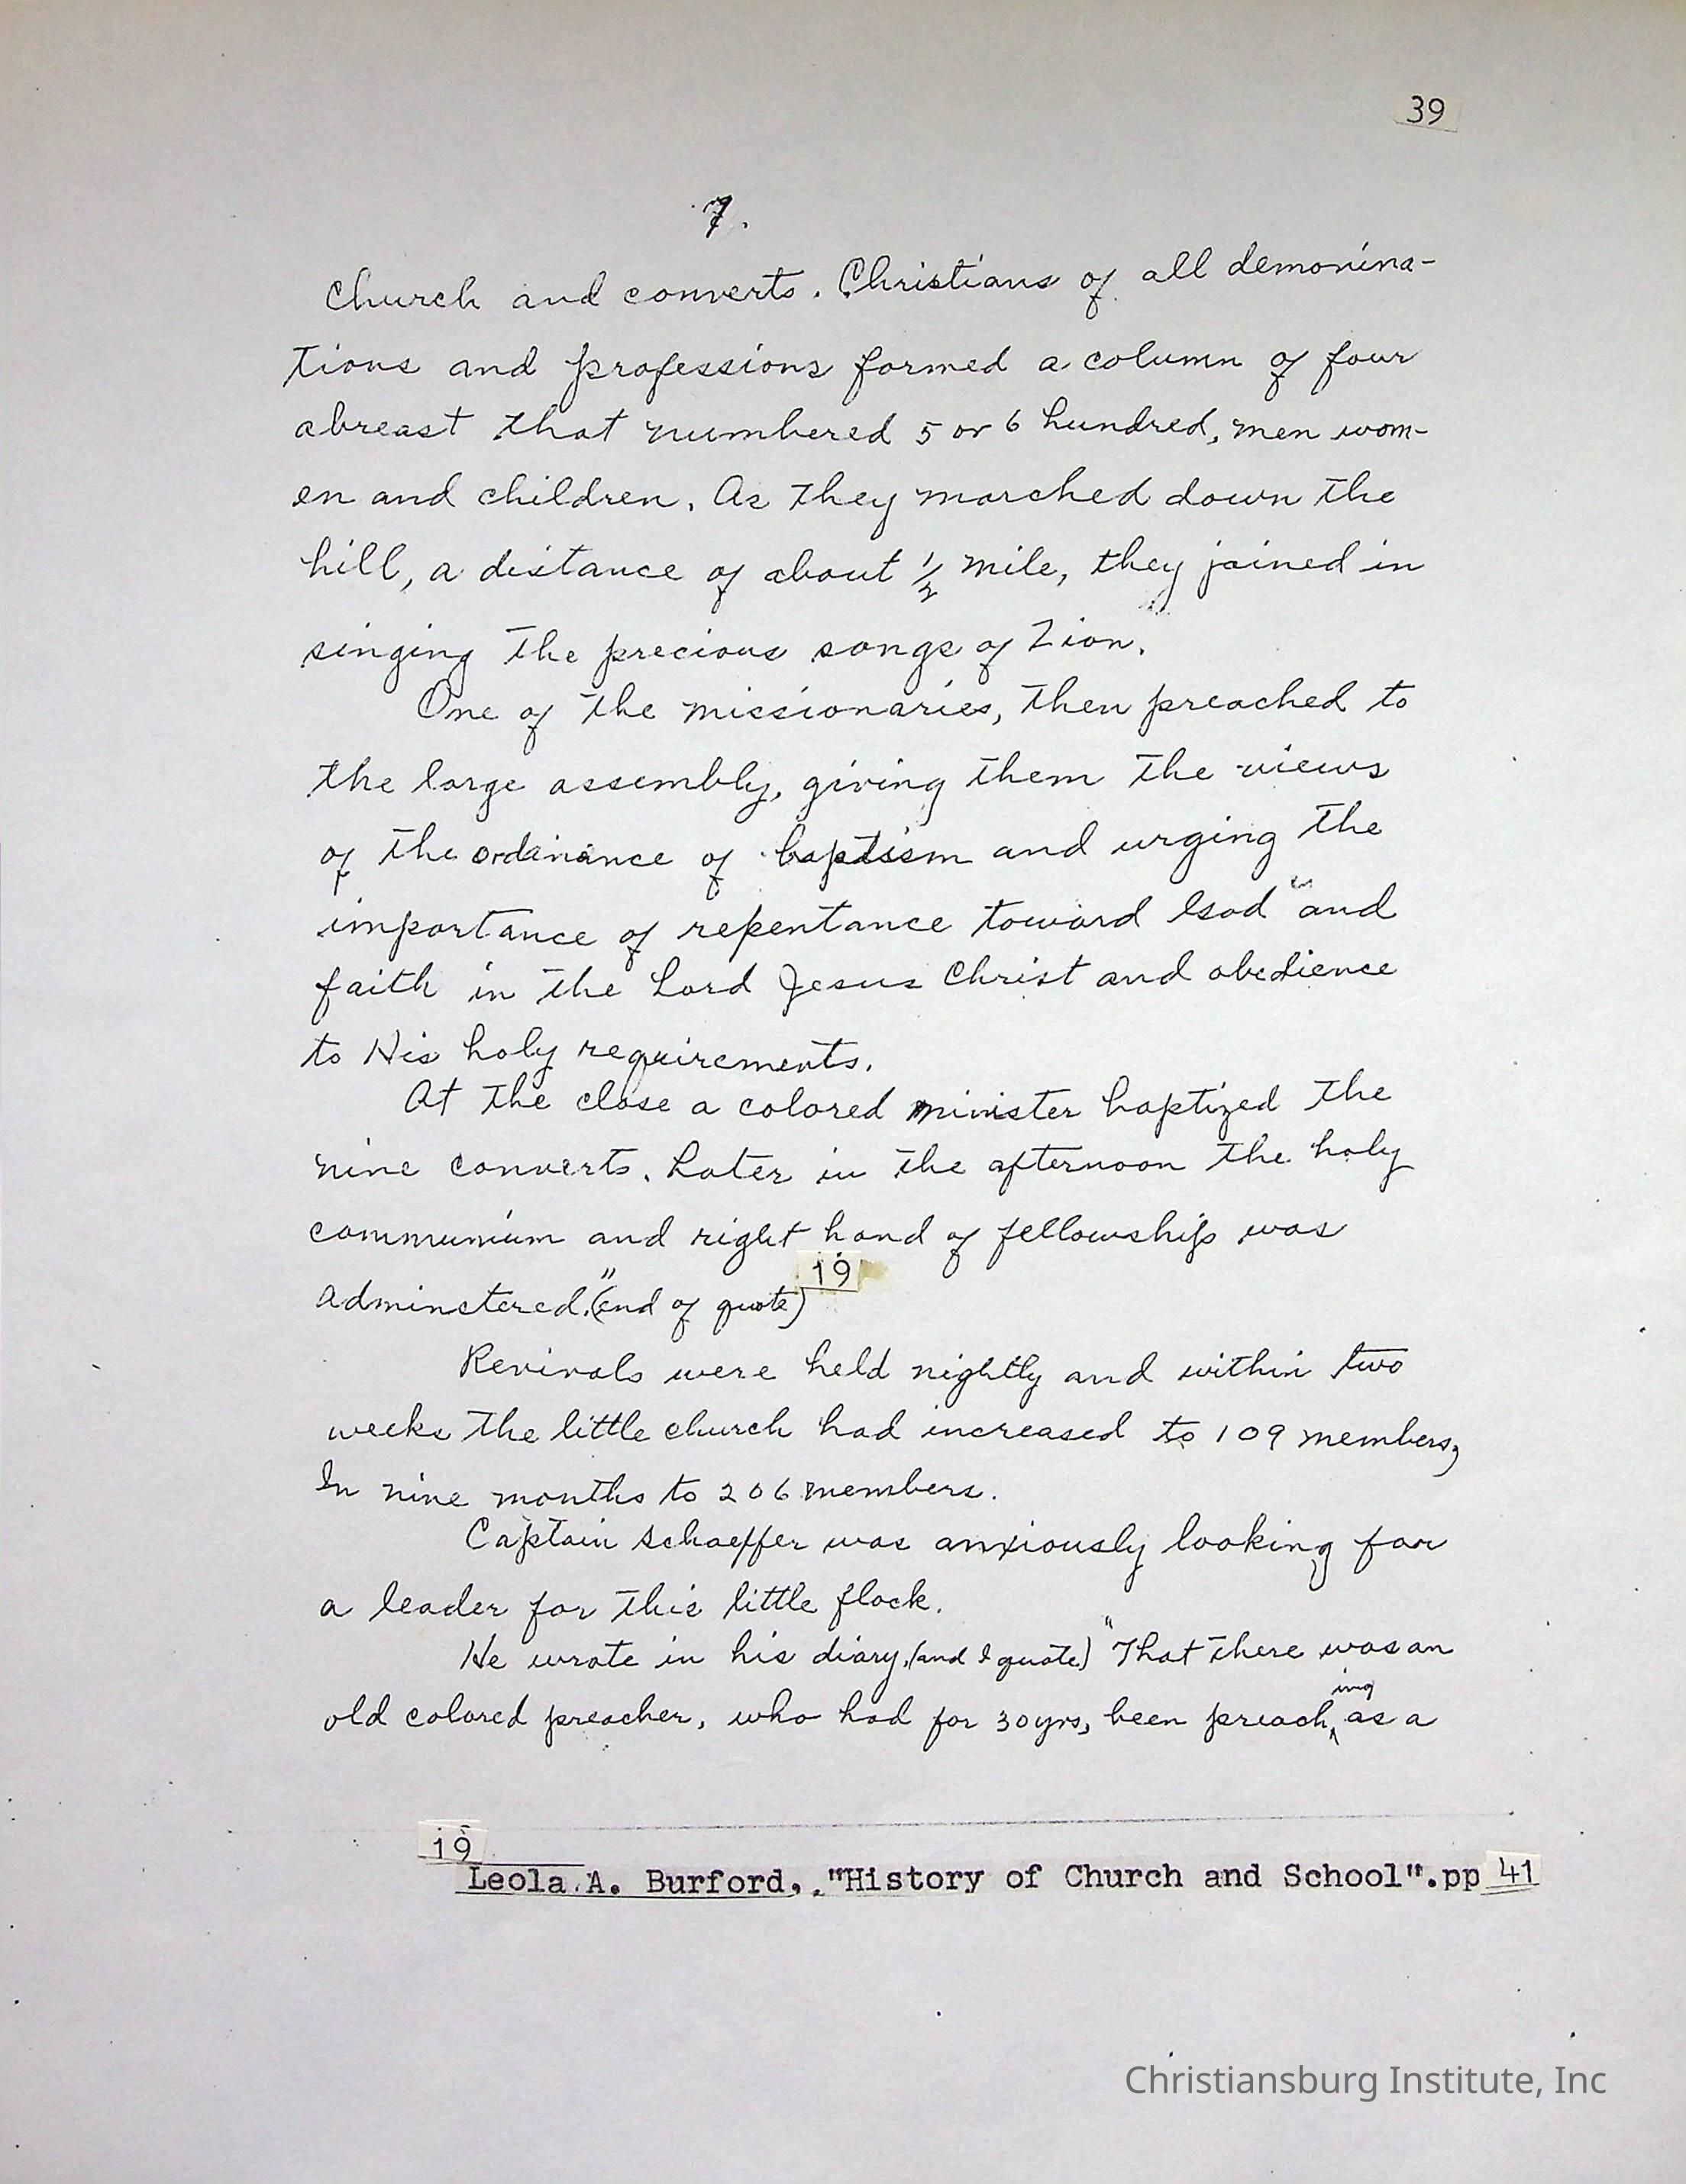 39
7.
Church and converts. Christians of all demonina-
tions and professions formed a column of four
abreast that numbered 5 or 6 hundred, men wom-
en and children. As they marched down the
hill, a distance of about 1/2 mile, they joined in
singing the precious songs of Zion.
One of the missionaries, then preached to
the large assembly, giving them the views
of the ordanance of baptism and urging the
importance of repentance toward God and
faith in the Lord Jesus Christ and obedience
to His holy requirements.
At the close a colored minister baptized the
nine converts. Later in the afternoon the holy
communium and right hand of fellowship was
adminstered." (end of quote) 19
Revivals were held nightly and within two
weeks the little church had increased to 109 members,
In nine months to 206 members.
Captain Schaeffer was anxiously looking for
a leader for this little flock.
He wrote in his diary, (and I quote) "That there was an
old colored preacher, who had for 30 yrs, been preaching as a
19
Leola A. Burford, "History of Church and School".pp 41
Christiansburg Institute, Inc